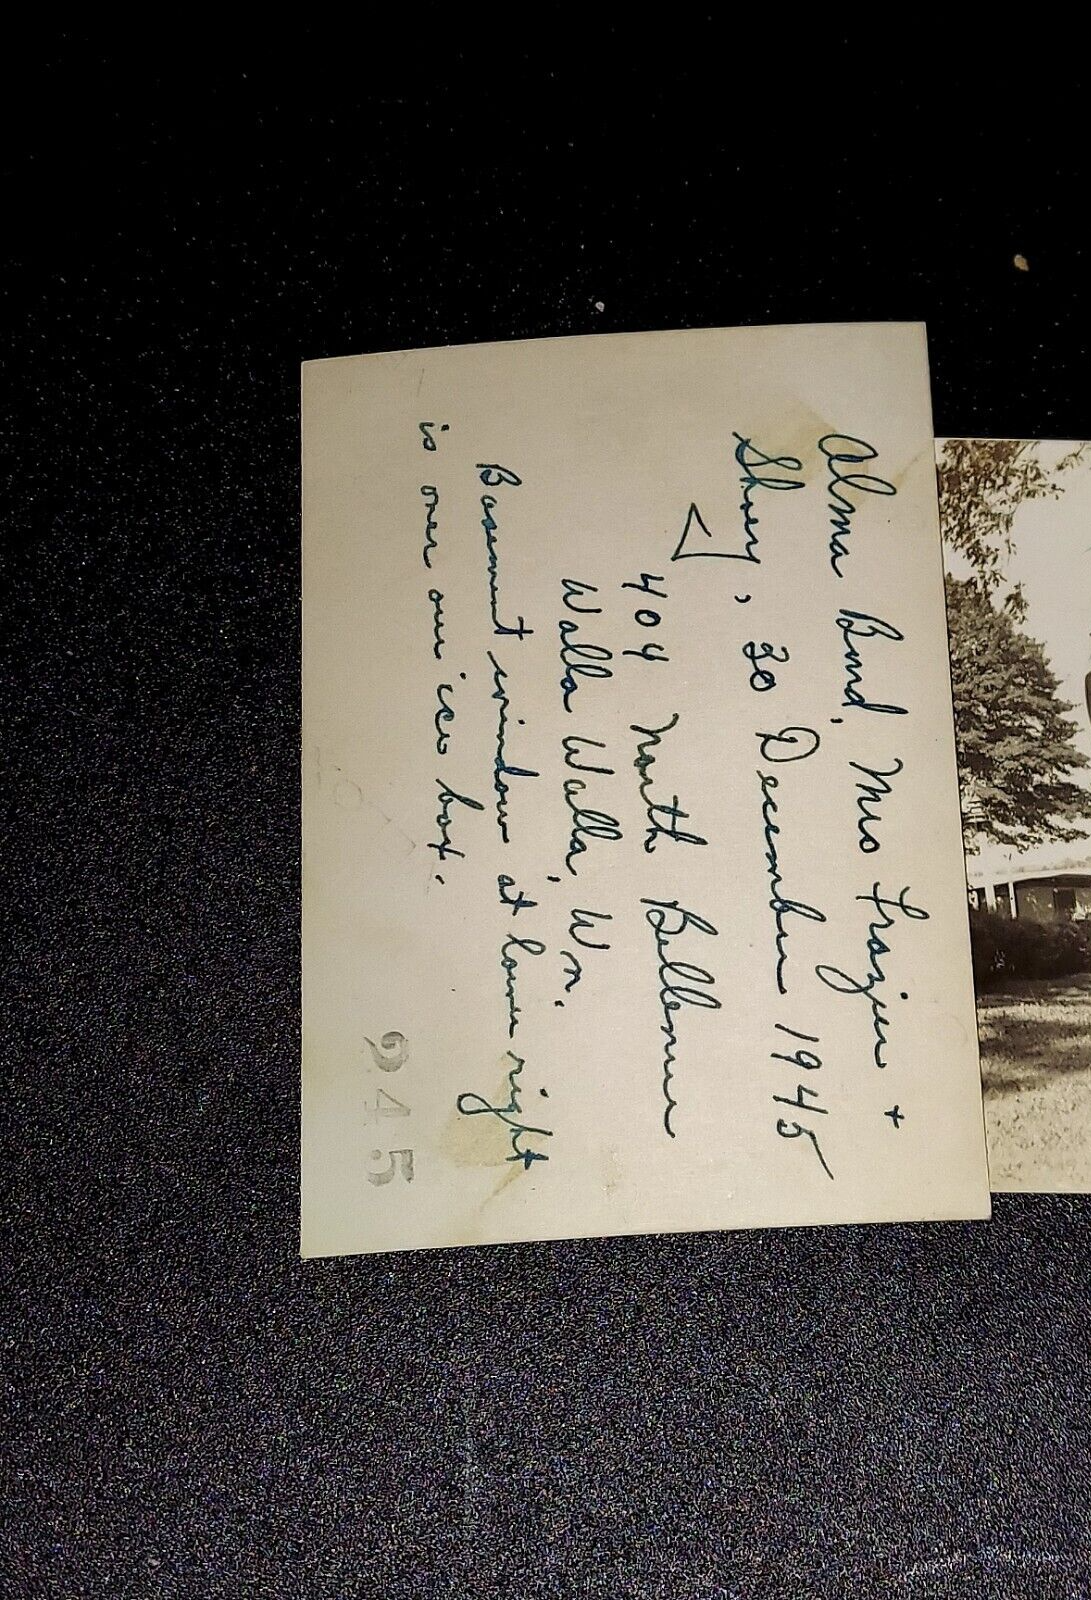 Alma Bond, Mrs Frazier +
Shorty, 30 December 1945
404 North Bellevue
Walla Walla, Wn.
Basement window at lower right
is over our ice box.
245